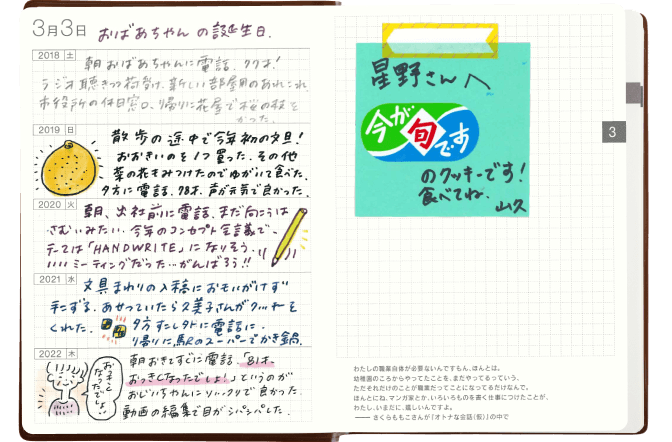 3月3日 おばあちゃんの誕生日.
2018 土
朝おばあちゃんに電話. 77才!
ラジオ聴きつつ荷受け. 新しい部屋用のあれこれ
市役所の休日窓口、帰りに花屋で桜の枝を
かった.
2019 日
散歩の途中で今年初の文旦!
おおきいのを1つ買った. その他
菜の花をみつけたのでゆがいて食べた.
夕方に電話. 78才. 声が元気で良かった.
2020 火
朝、出社前に電話. まだ向こうは
さむいみたい. 今年のコンセプト会議で、
テーマは「HANDWRITE」になりそう.
いいミーティングだった…がんばろう!!
2021 水
文具まわりの入稿におもいがけず
手こずる. あせっていたら久美子さんがクッキーを
くれた.
夕方すこし外に電話に.
帰りに駅のスーパーでかき鍋.
2022 木
おっきく
なったでしょ!
朝おきてすぐに電話. 「81才.
おっきくなったでしょ!」というのが
おじいちゃんにソックリで良かった.
動画の編集で目がシパシパした.
星野さんへ
今が旬です
のクッキーです!
食べてね. 山久
3
わたしの職業自体が必要ないんですもん、ほんとは。
幼稚園のころからやってたことを、まだやってるっていう、
ただそれだけのことが職業だってことになってるだけなんで。
ほんとにね、マンガ家とか、いろいろものを書く仕事につけたことが、
わたし、いまだに、嬉しいんですよ。
―― さくらももこさんが『オトナな会話(仮)』の中で